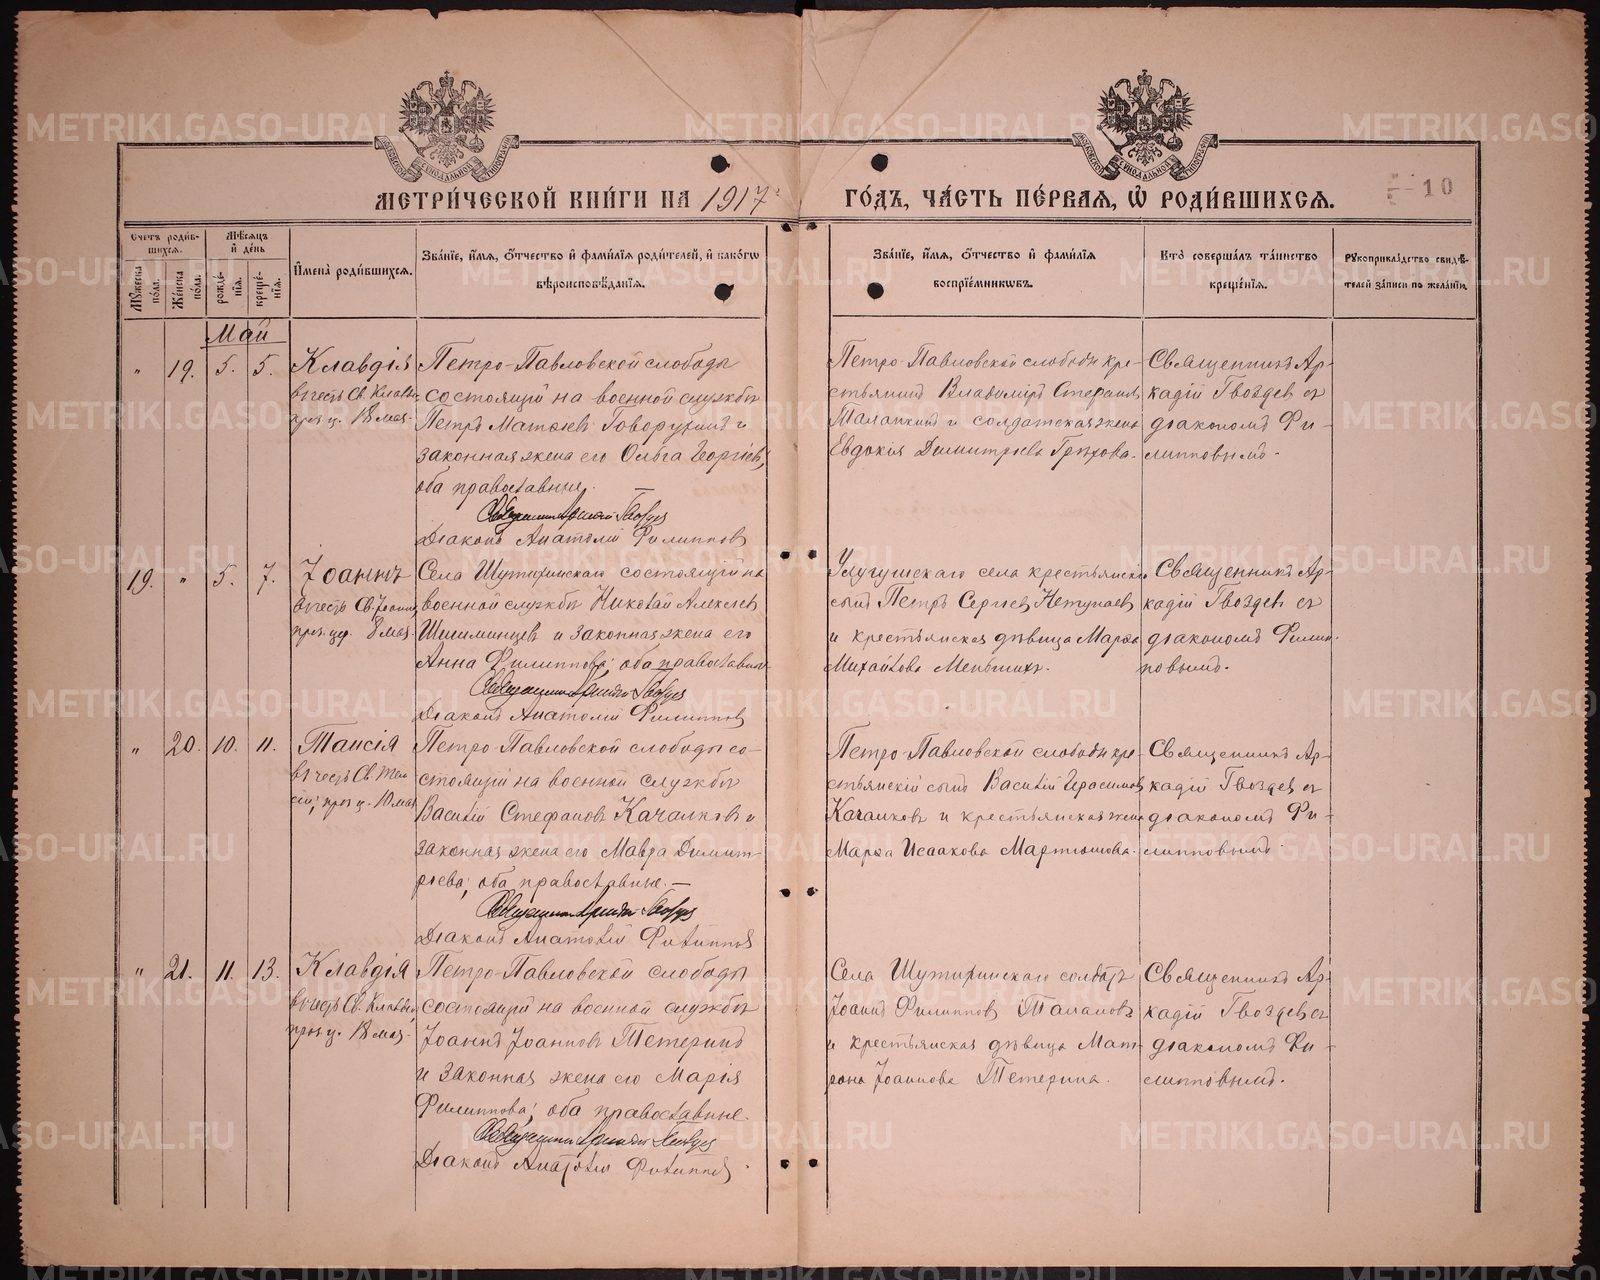 МЕТРИ́ЧЕСКОЙ КНИ́ГИ НА 1917 ГО́ДЪ, ЧА́СТЬ ПЕ́РВАЯ, Ѡ РОДИ́ВШИХСЯ.
10
Счетъ роди́вшихся.
Му́жеска по́ла.
Же́нска по́ла.
Мѣ́сяцъ и де́нь
рожде́нїя.
креще́нїя.
Имена̀ роди́вшихся.
Зва́нїе, и́мя, о́тчество и фами́лїя роди́телей, и како́гѡ
вѣроисповѣ́данїя.
Зва́нїе, и́мя, о́тчество и фами́лїя
воспрїе́мникѡвъ.
Кто̀ соверша́лъ та́инство
креще́нїя.
Рукоприкла́дство свидѣ́-
телей за́писи по жела́нїю.
Май
" 19. 5. 5.
Клавдія
въ честь Св. Клавдіи
празд. 18 мая.
Петро-Павловской слободы
состоящій на военной службѣ
Петръ Матѳіевъ Говорухинъ и
законная жена его Ольга Георгіев,
оба православные.
Священникъ Аркадій Гвоздев
Діаконъ Анатолій Филиппов
Петро-Павловской слободы кре-
стьянинъ Владиміръ Стефанов
и солдатская жена
Евдокія Димитріева Грѣхова.
Священникъ Ар-
кадій Гвоздевъ съ
діакономъ Фи-
липповымъ.
19. " 5. 7.
Іоаннъ
въ честь Св. Іоанна
8 мая.
Села Шутихинскаго состоящій на
военной службѣ Николай Алексіев
и законная жена его
Анна Филиппова; оба православные
Священникъ Аркадій Гвоздев
Діаконъ Анатолій Филиппов
села крестьянскій
сынъ Петръ Сергіев
и крестьянская дѣвица Марѳа
Михайлова Меньшихъ.
Священникъ Ар-
кадій Гвоздевъ съ
діакономъ Филип-
повымъ.
" 20. 10. 11.
Таисія
въ честь Св. Таи-
сіи; 10 мая
Петро-Павловской слободы со-
стоящій на военной службѣ
Василій Стефановъ Качалковъ и
законная жена его Мавра Димит-
ріева; оба православные.
Священникъ Аркадій Гвоздев
Діаконъ Анатолій Филиппов
Петро-Павловской слободы кре-
стьянскій сынъ Василій Герасимов
Качалковъ и крестьянская жена
Марѳа Исаакова Мартюшова.
Священникъ Ар-
кадій Гвоздевъ съ
діакономъ Фи-
липповымъ
" 21. 11. 13.
Клавдія
въ честь Св. Клавдіи,
18 мая.
Петро-Павловской слободы
состоящій на военной службѣ
Іоаннъ Іоанновъ Тетеринъ
и законная жена его Марія
Филиппова; оба православные.
Священникъ Аркадій Гвоздев
Діаконъ Анатолій Филиппов
Села Шутихинскаго солдатъ
Іоаннъ Филиппов
и крестьянская дѣвица Мат-
рона Іоаннова Тетерина.
Священникъ Ар-
кадій Гвоздевъ съ
діакономъ Фи-
липповымъ.
METRIKI.GASO-URAL.RU